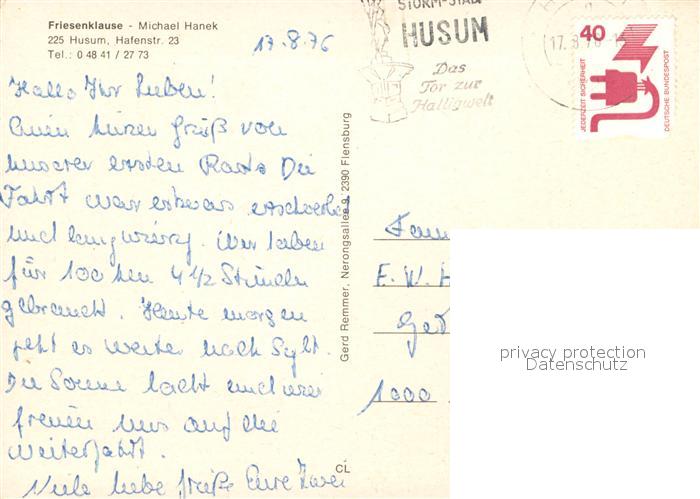 Friesenklause - Michael Hanek
225 Husum, Hafenstr. 23
Tel.: 0 48 41 / 27 73
17.8.76
STORM-STADT
HUSUM
Das
Tor zur
Halligwelt
17.8.76
40
JEDERZEIT SICHERHEIT
DEUTSCHE BUNDESPOST
Hallo Ihr Lieben!
Einen kurzen Gruß von
unserer ersten Rast. Die
Fahrt war etwas erschwert
und langwierig. Wir haben
für 100 km 4 1/2 Stunden
gebraucht. Heute morgen
geht es weiter nach Sylt.
Die Sonne lacht und wir
freuen uns auf die
Weiterfahrt.
Viele liebe Grüße Eure Zwei
Gerd Remmer, Nerongsallee 9, 2390 Flensburg
CL
Fam
E. W. H
Ged
1000
privacy protection
Datenschutz